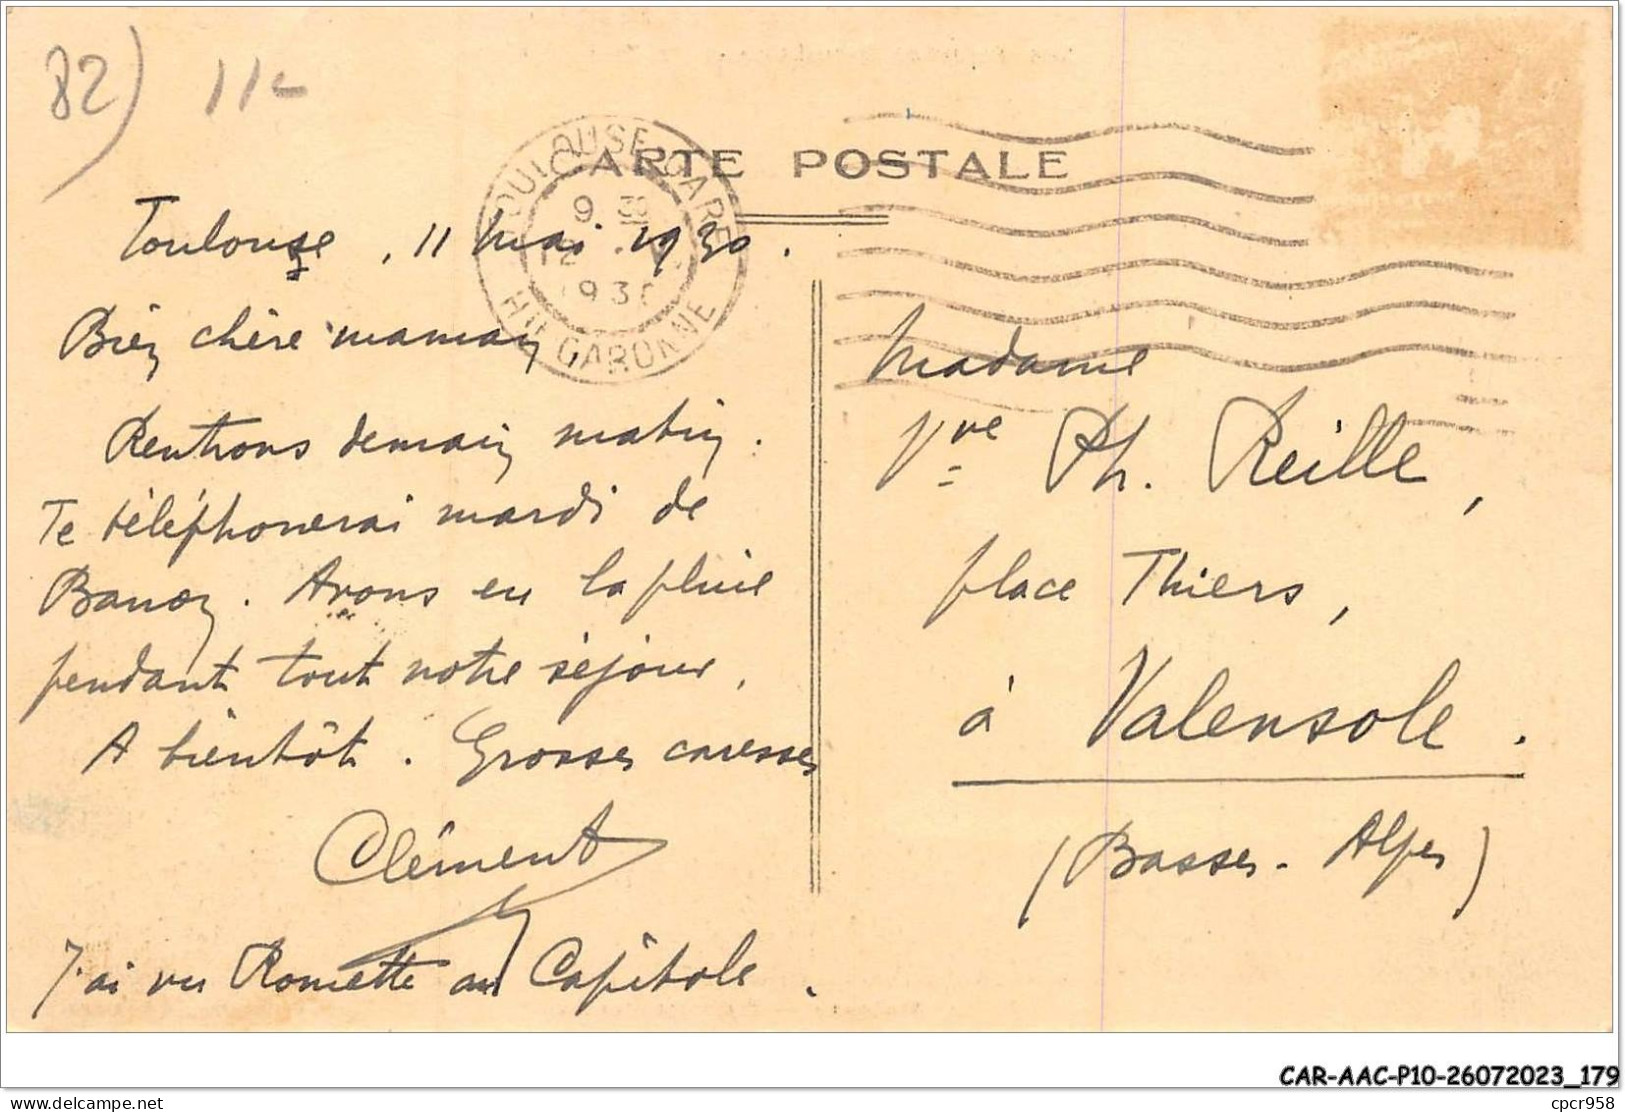 82) 11-
CARTE POSTALE
TOULOUSE GARE
9 30
12
1930
HTE GARONNE
Toulouse, 11 Mai 1930.
Bien chère maman,
Rentrons demain matin.
Te téléphonerai mardi de
Banon. Avons eu la pluie
pendant tout notre séjour.
A bientôt. Grosses caresses
Clément
J'ai vu Romette au Capitole.
Madame
Vve Ph. Reille,
place Thiers,
à Valensole.
(Basses-Alpes)
CAR-AAC-P10-26072023_179
delcampe.net
cpcr958